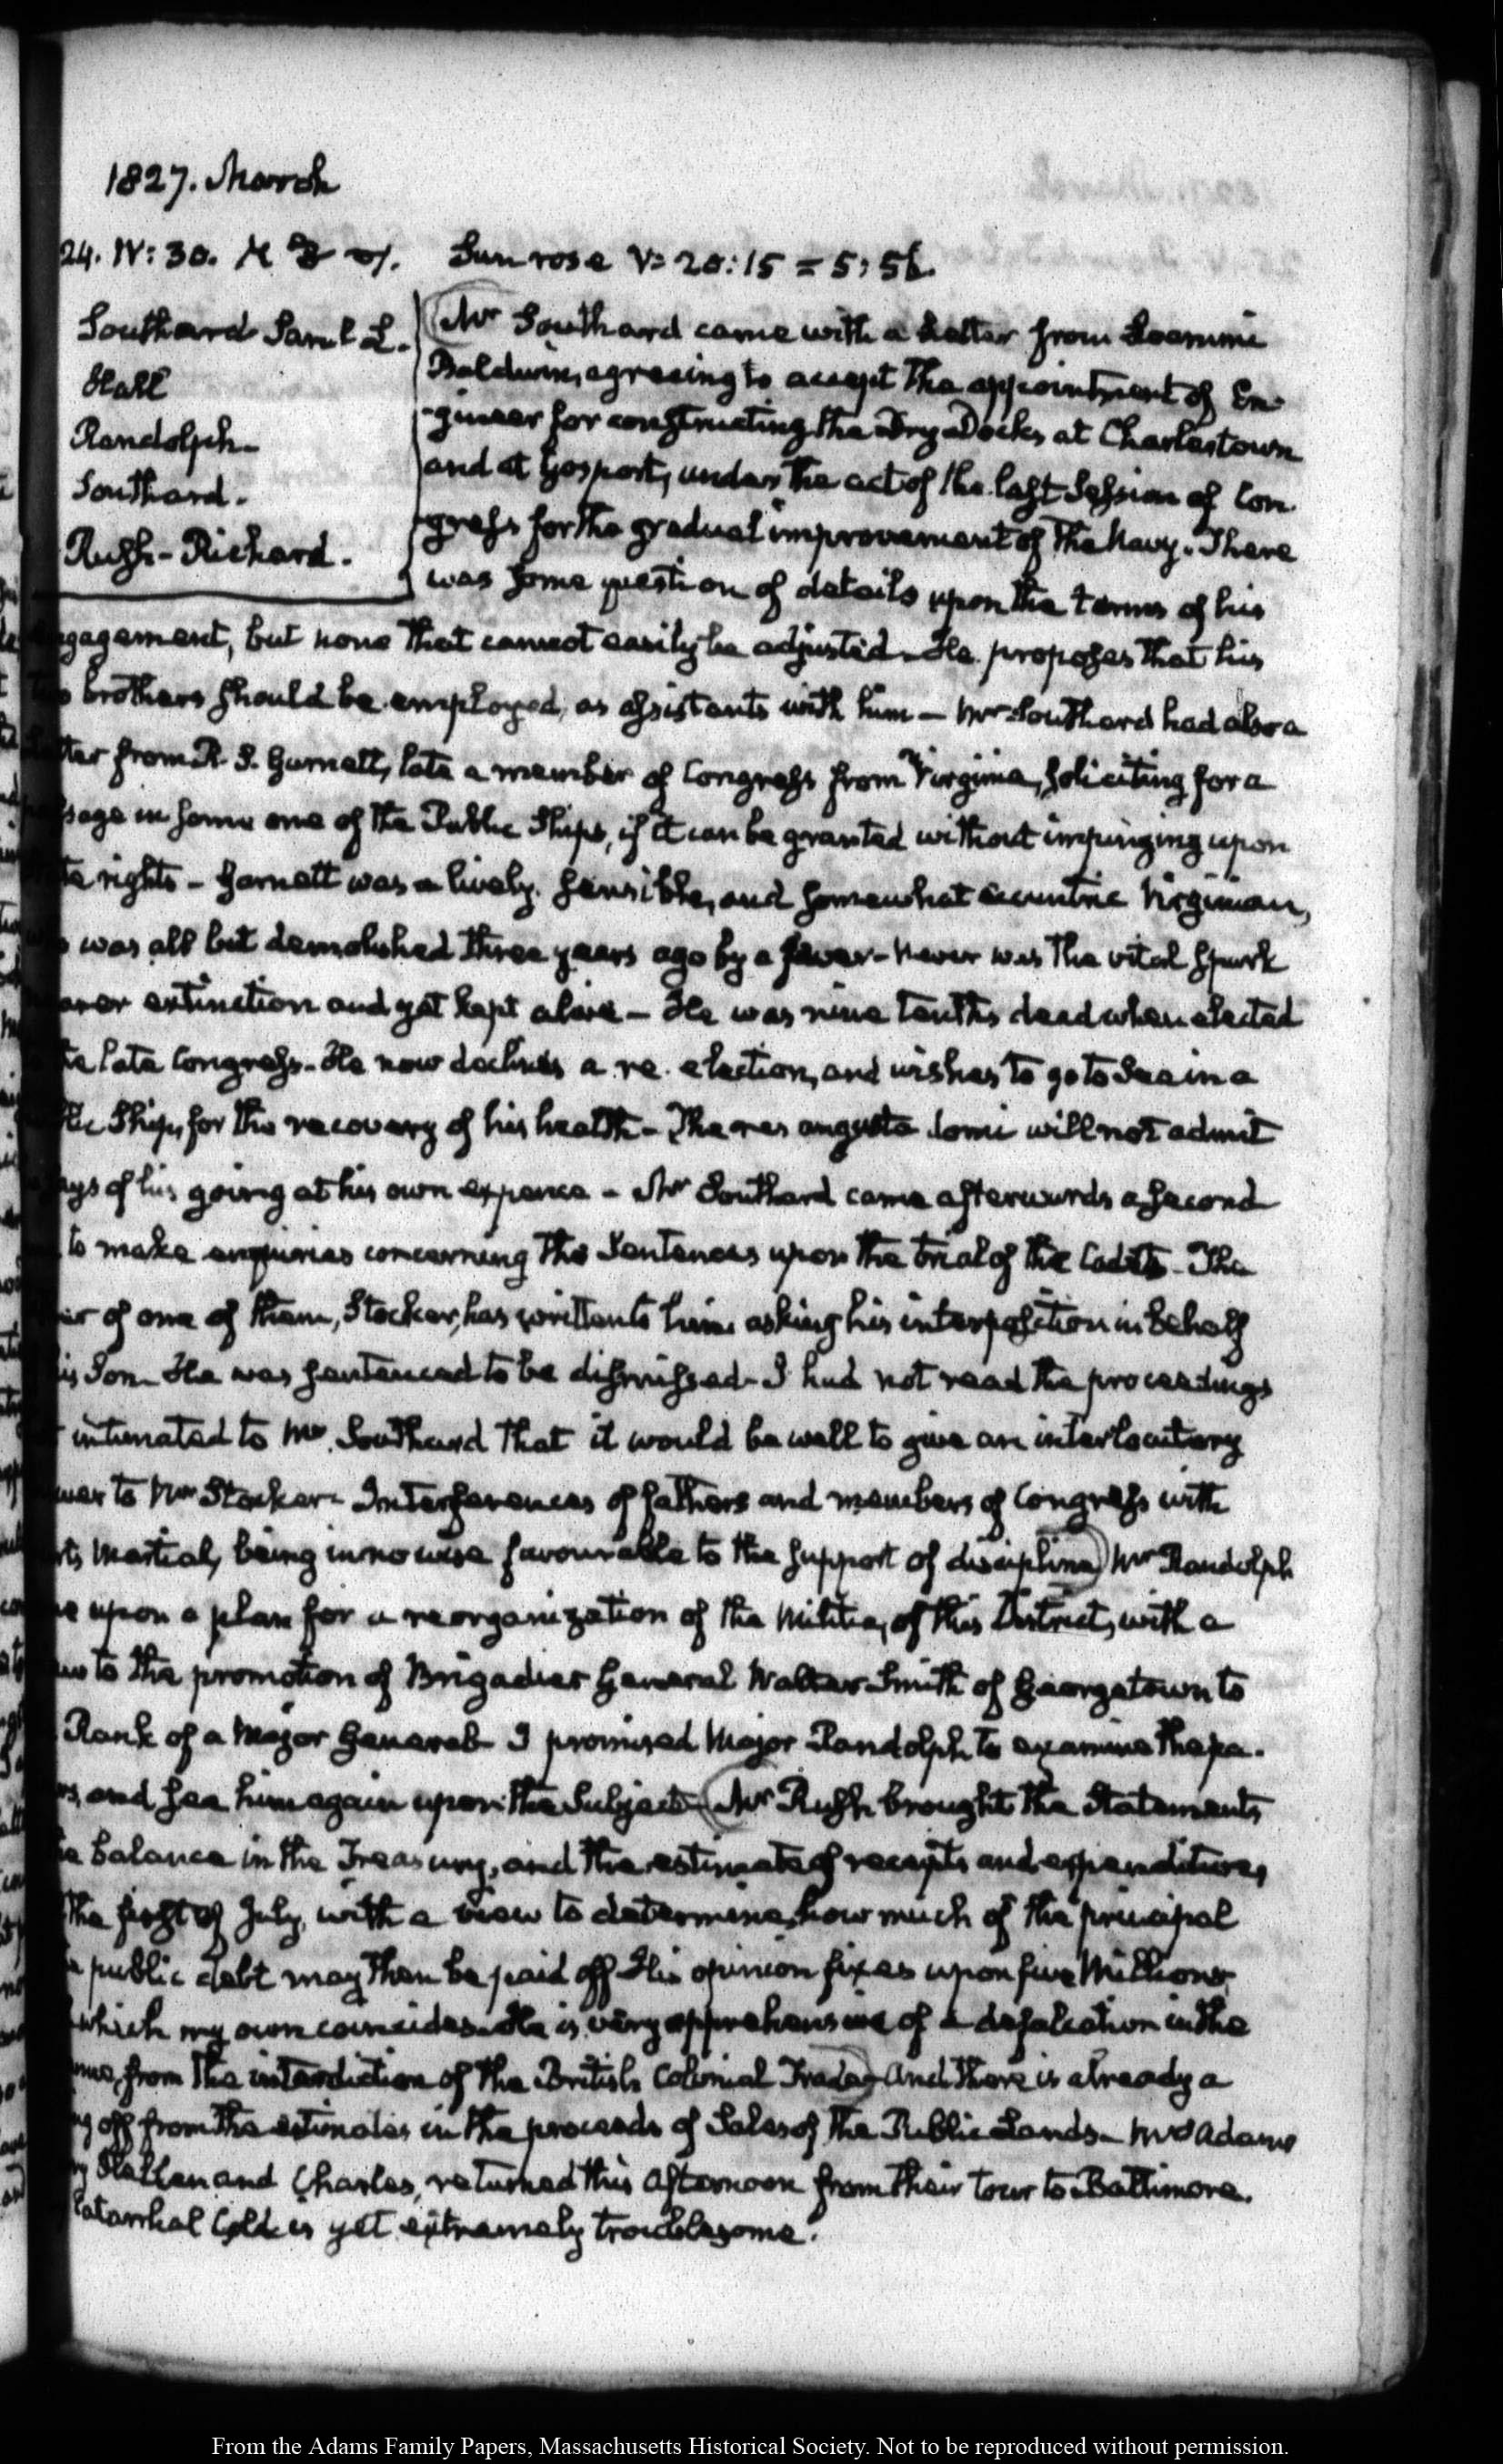 1827. March
24. IV: 30. Sun rose V: 20:15 = 5:56.
Southard Saml L.
Hall
Randolph-
Southard.
Rush-Richard.
Mr Southard came with a Letter from Loammi
Baldwin, agreeing to accept the appointment of En-
-gineer for constructing the Dry Docks, at Charlestown
and at Gosport, under the act of the last Session of Con-
-gress for the gradual improvement of the Navy. There
was some question of details upon the terms of his
gagement, but none that cannot easily be adjusted. He proposes that his
brothers should be employed, as assistants with him — Mr Southard had also a
ter from R. S. Garnett, late a member of Congress from Virginia, soliciting for a
sage in some one of the Public Ships, if it can be granted without impinging upon
te rights - Garnett was a lively, sensible, and somewhat eccentric Virginian,
was all but demolished three years ago by a fever - Never was the vital spark
arer extinction and yet kept alive — He was nine tenths dead when elected
late Congress. He now declines a re-election, and wishes to go to Sea in a
lic Ship, for the recovery of his health - The res angusta domi will not admit
ays of his going at his own expence - Mr Southard came afterwards a second
to make enquiries concerning the Sentences upon the trial of the Cadets - The
er of one of them, Stocker, has written to him asking his interposition in behalf
is Son. He was sentenced to be dismissed - I had not read the proceedings
intimated to Mr Southard that it would be well to give an interlocutory
wer to Mr Stocker - Interferences of fathers and members of Congress with
rts Martial, being in no wise favourable to the support of discipline) Mr Randolph
e upon a plan for a reorganization of the Militia, of this District, with a
ew to the promotion of Brigadier General Walter Smith of Georgetown to
Rank of a Major General - I promised Major Randolph to examine the pa-
rs, and see him again upon the Subject - (Mr Rush brought the Statements
e balance in the Treasury, and the estimate of receipts and expenditures,
the first of July, with a view to determine, how much of the principal
e public debt may then be paid off. His opinion fixes upon five Millions,
which my own coincides. He is very apprehensive of a defalcation in the
nue, from the interdiction of the British Colonial Trade) And there is already a
ng off from the estimates in the proceeds of Sales of the Public Lands - Mrs Adams
Hellen and Charles, returned this afternoon from their tour to Baltimore.
Catarrhal Cold is yet extremely troublesome.
From the Adams Family Papers, Massachusetts Historical Society. Not to be reproduced without permission.